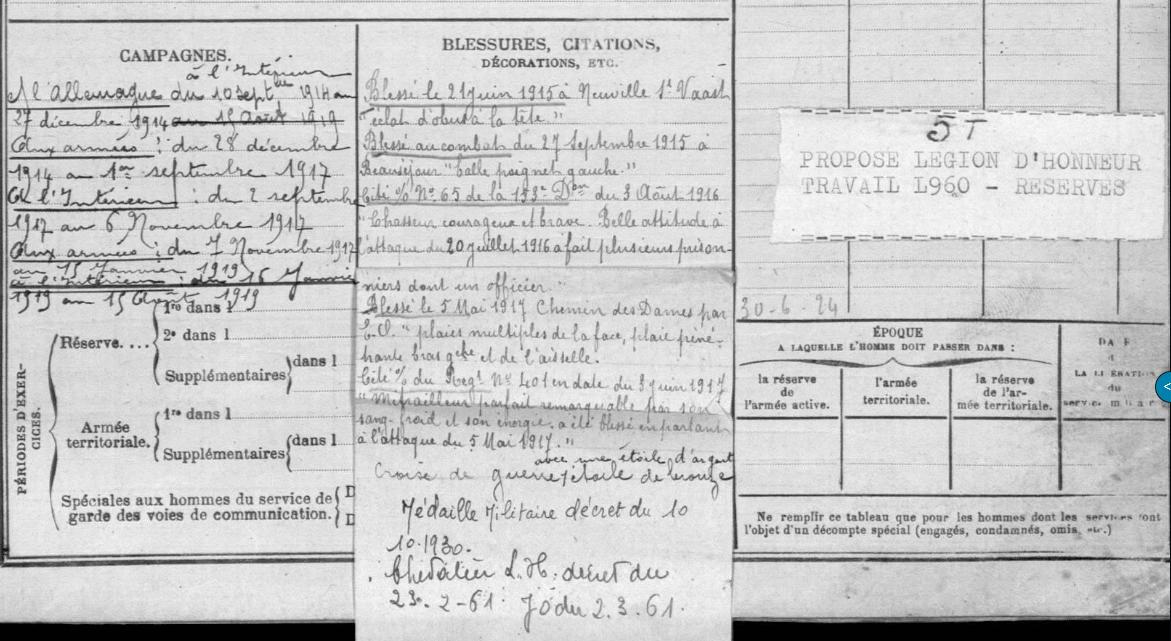 CAMPAGNES.
à l'Intérieur
A l'Allemagne du 10 sept bre 1914 au
27 décembre 1914 au 15 Août 1919
Aux armées : du 28 décembre
1914 au 1er septembre 1917
A l'Intérieur : du 2 septembre
1917 au 6 Novembre 1917
Aux armées : du 7 Novembre 1917
au 15 Janvier 1919
à l'Intérieur : du 16 Janvier
1919 au 15 Août 1919
PÉRIODES D'EXERCICES.
Réserve....
1re dans l
2e dans l
Supplémentaires
dans l
Armée
territoriale.
1re dans l
Supplémentaires
dans l
Spéciales aux hommes du service de
garde des voies de communication.
D
D
BLESSURES, CITATIONS,
DÉCORATIONS, ETC.
Blessé le 21 juin 1915 à Neuville St Vaast
"éclat d'obus à la tête."
Blessé au combat du 27 Septembre 1915 à
Beauséjour "balle poignet gauche."
Cité % No 65 de la 153e Don du 3 Août 1916
"Chasseur courageux et brave. Belle attitude à
l'attaque du 20 juillet 1916 a fait plusieurs prison-
niers dont un officier."
Blessé le 5 Mai 1917 Chemin des Dames par
E.O. "plaies multiples de la face, plaie péné-
trante bras gche et de l'aisselle.
Cité % du Regt No 401 en date du 3 juin 1917
"Mitrailleur parfait remarquable par son
sang-froid et son énergie. a été blessé en partant
à l'attaque du 5 Mai 1917."
avec une étoile d'argent
Croix de guerre étoile de bronze
Médaille Militaire décret du 10
10.1930.
Chevalier L.H. décret du
23-2-61. JO du 2.3.61.
5T
PROPOSE LEGION D'HONNEUR
TRAVAIL L960 - RESERVES
30-6-24
ÉPOQUE
A LAQUELLE L'HOMME DOIT PASSER DANS :
la réserve
de
l'armée active.
l'armée
territoriale.
la réserve
de l'ar-
mée territoriale.
LA LI ÉRATION
du
Ne remplir ce tableau que pour les hommes dont les services sont
l'objet d'un décompte spécial (engagés, condamnés, omis, etc.)